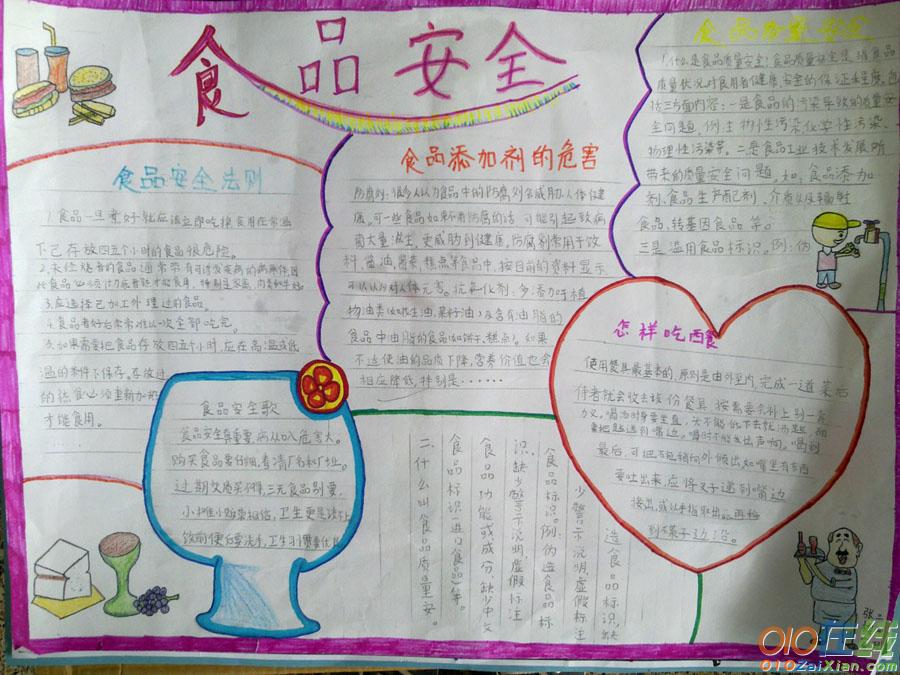 食品安全
食品安全法则
1.食品一旦煮好就应该立即吃掉,食用在常温
下已存放四五个小时的食品很危险。
2.未经烧煮的食品通常带有可诱发疾病的病原体,因
此食品必须彻底煮熟才能食用,特别是家禽、肉类和牛奶。
3.应选择已加工处理过的食品。
4.食品煮好后常常难以一次全部吃完。
5.如果需要把食品存放四五个小时,应在高温或低
温的条件下保存。存放过
的熟食必须重新加热
才能食用。
……
食品安全歌
食品安全真重要,病从口入危害大。
购买食品要仔细,看清厂名和厂址。
过期变质买不得,三无食品别要。
小摊小贩莫相信,卫生更是谈不上
饭前便后要洗手,卫生习惯要
食品添加剂的危害
防腐剂:很多人认为食品中的防腐剂会威胁人体健
康。可一些食品如果不用防腐的话,可能引起致病
菌大量滋生,更威胁到健康。防腐剂常用于饮
料、酱油、酱菜、糕点等食品中,按目前的资料显示
可以认为对人体无害。抗氧化剂:多添加于植
物油类(如花生油、菜籽油)及含有油脂的
食品中由脂的食品(如饼干、糕点)。如果
不这使油的品质下降,营养价值也会
相应降低,特别是……
食品质量安全
1.什么是食品质量安全?食品质量安全是指食品
质量状况对食用者健康、安全的保证程度,包
括三方面内容:一是食品的污染导致的质量安
全问题,例:生物性污染、化学性污染、
物理性污染等。二是食品工业技术发展所
带来的质量安全问题,如:食品添加
剂、食品生产配剂、介质以及辐射
食品、转基因食品等。
三是滥用食品标识。例:伪
造食品标识,缺
少警示说明,虚假标注
食品标识。例:伪造食品标
识、缺少警示说明、虚假标注
食品功能或成分、缺少中文
食品标识(进口食品)等。
二、什么叫食品质量安。
怎样吃西餐
使用餐具最基本的原则是由外至内,完成一道菜后
侍者就会收去该份餐具,按需要会补上另一套
刀叉。喝汤时身要坐直,大不能低下去就汤匙,而
要把匙送到嘴边,喝时不能发出声响。喝到
最后,可把汤匙稍向外倾出,如嘴里有东西
要吐出来,应将叉子递到嘴边
接出,或以手指取出,再移
到碟子边沿。
010在线
010ZaiXian.com